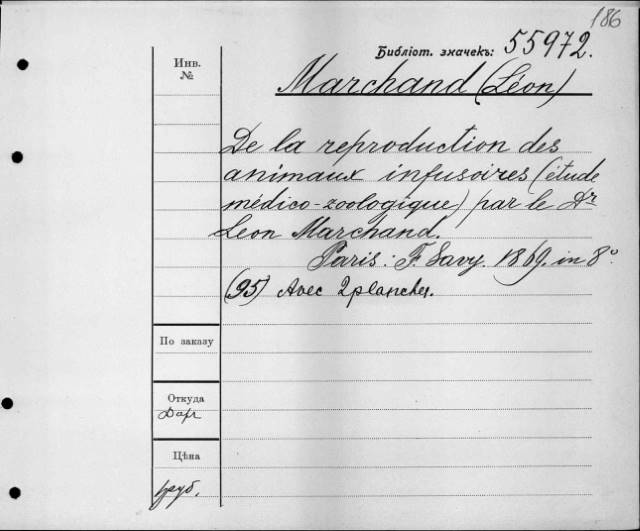 186
Библіот. значекъ: 55972.
Инв.
№
Marchand (Léon)
De la reproduction des
animaux infusoires (étude
médico-zoologique) par le Dr
Léon Marchand.
Paris: F. Savy. 1869. in 8º
(95) Avec 2 planches.
По заказу
Откуда
Даръ
Цѣна
руб.